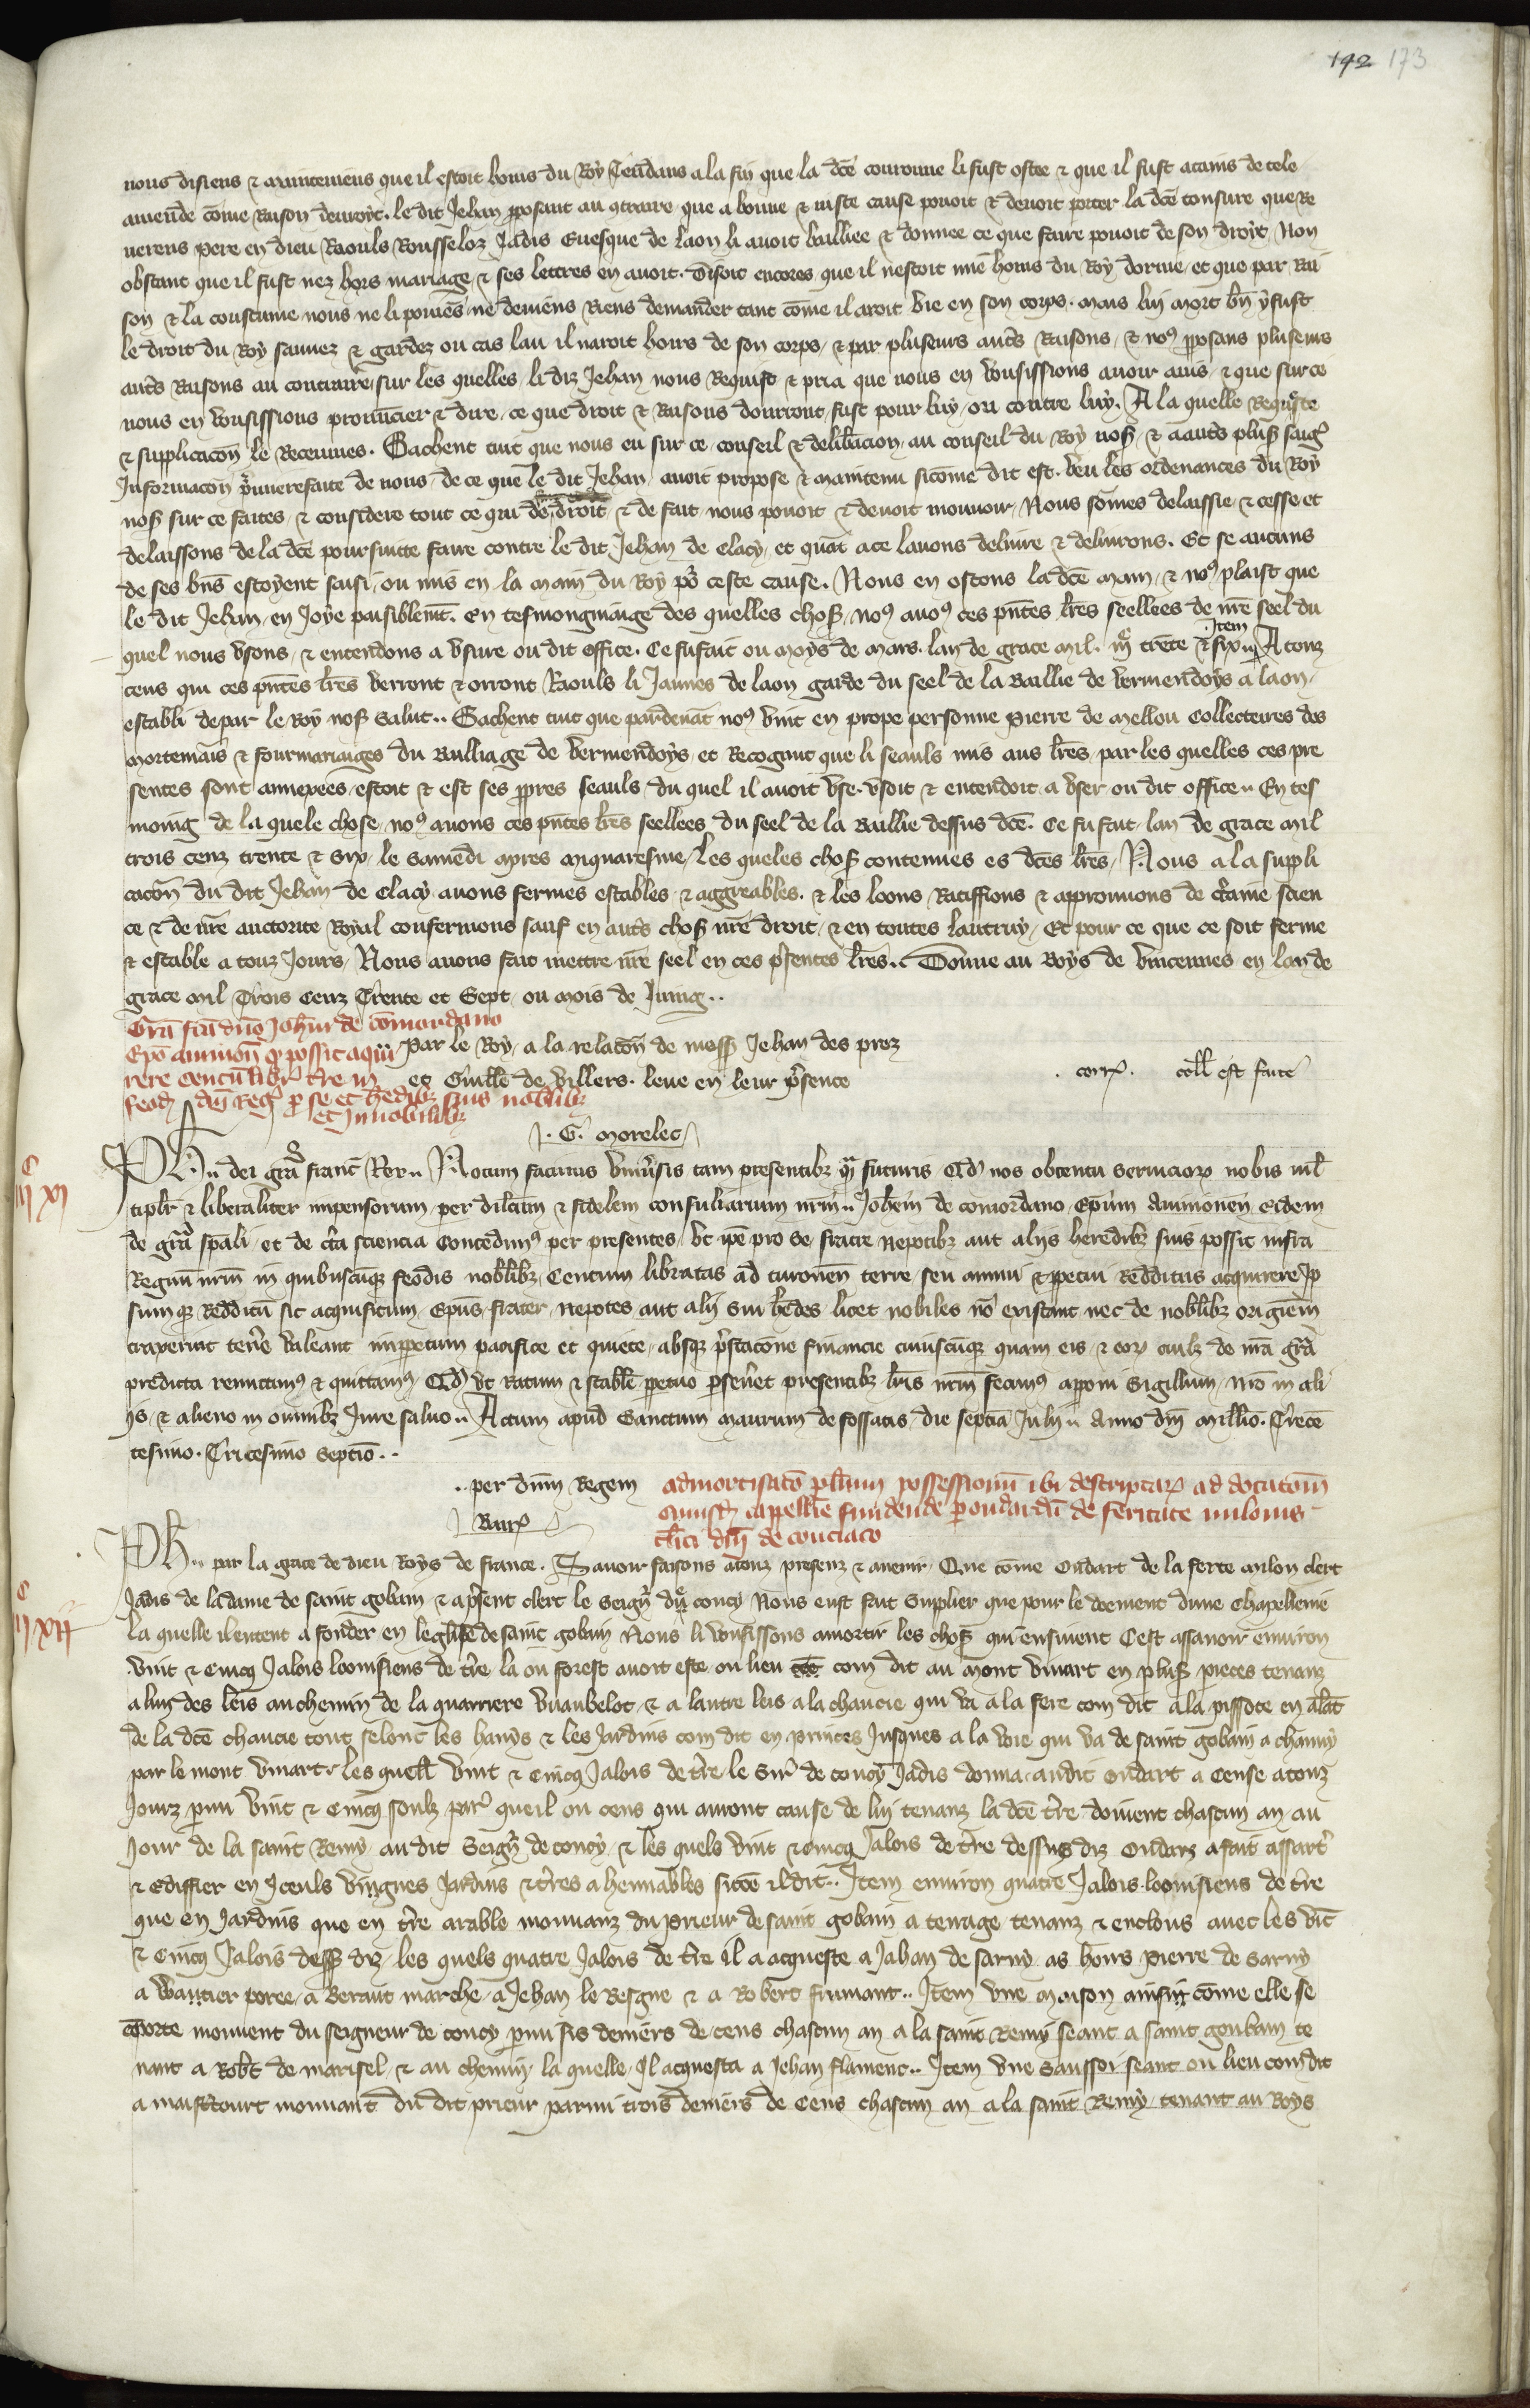 192 173
nous disiens & mainteniens que il estoit homs du Roy Tendans a la fin que la dce couronne li fust ostee & que il fust atains de tele
amende come Raison deuroit. le dit Jehan pposant au 9traire que a bonne & iuste cause pouoit & deuoit porter la dce tonsure que Re
uerens pere en dieu Raouls Rousseloz Jadis Euesque de laon li auoit bailliee & donnee ce que faire pouoit de son droit, Non
obstant que il fust nez hors mariage, & ses lettres en auoit. Disoit encores que il nestoit mie homs du Roy dorme, et que par Rai
son & la coustume nous ne li poiens ne deuiens Riens demander tant come il aroit vie en son corps. mais lui mort bn y fust
le droit du Roy sauuez & gardez ou cas lau il naroit hoirs de son corps, & par pluseurs autrs Raisons, & no9 pposans pluseurs
autrs Raisons au contraire, sur les quelles, li diz Jehan nous Requist & pria que nous en vousissions auoir auis, & que sur ce
nous en vousissions prononcier & dire, ce que droit & Raisons donrront, fust pour luy, ou contre luy. A la quelle Requeste
& supplicacon le Receumes. Sachent tuit que nous eu sur ce, conseil & deliberacion, au conseil du Roy nos, & a autrs plus saig
Informacon pmieremt faite de nous, de ce que le dit Jehan, auoit propose & maintenu sicome dit est. veu les ordenances du Roy
nos sur ce faites, & considere tout ce qui de droit, & de fait, nous pouoit & deuoit mouuoir, Nous somes delaissie & cesse et
delaissons de la dce poursuitte faire contre le dit Jehan de Clacy, et quat a ce lauons deliure & deliurons. Et se aucuns
de ses bns estoyent saisi, ou mis en la main du Roy por ceste cause. Nous en ostons la dce main, & no9 plaist que
le dit Jehan, en Joye paisiblemt. en tesmongnaige des quelles chos, no9 auo9 ces pntes lres seellees de nre seel du
quel nous vsons, & entendons a vsure ou dit office. Ce fu fait ou moys de mars. lan de grace mil. iijc trente & six. Item A touz
ceus qui ces pntes lres verront & orront Raouls li Jaunes de laon garde du seel de la Baillie de vermendoys a laon,
establi depar le Roy nos salut.. Sachent tuit que pardeuat no9 vint en prope personne pierre de mellou Collecteures des
mortemais & fourmariaiges du Bailliage de vermendoys, et Recognut que li seauls mis aus lres, par les quelles ces pre
sentes sont annexees, estoit & est ses ppres seauls, du quel il auoit vse. vsoit & entendoit a vser, ou dit office.. En tes
moing de la quele chose, no9 auons ces pntes lres seellees du seel de la Baillie dessus dce. Ce fu fait, lan de grace mil
trois cenz trente & Six, le samedi apres miquaresme, Les queles chos contenues es dces lres, Nous a la suppli
cacon du dit Jehan de Clacy auons fermes estables, & aggreables. & les loons Ratiffions & approuuons de crtaine scien
ce & de nre auctorite Royal confermons, sauf en autrs chos nre droit, & en toutes lautruy, Et pour ce que ce soit ferme
& estable a touz Jours, Nous auons fait mettre nre seel en ces psentes lres.. Donne au Boys de vincennes en lan de
grace mil Trois Cenz Trente et Sept, ou mois de Juing..
Gra fca dno Johni de comordano
Epo auinion q possit aqui
rere centu libr tre in
feod dni Reg p se et hedibz suis nobilibz
et Innobilibz
Par le Roy, a la relacon de mess Jehan des prez
et Guille de villers. leue en leur psence
. corr. coll est faite
J. G. morelet
iijc xj
Ph.. dei gra franc Rex.. Notum facimus vniusis tam presentibz qm futuris Qd nos obtentu seruicior nobis ml
tiplr & liberaliter impensorum per dilcum & fidelem consiliarium nrm.. Johem de comordano Epum Auinionen eidem
de gra spali, et de crta sciencia Concedim9 per presentes, vt ipe pro se, fratre nepotibz aut alijs heredibz suis possit infra
Regnu nrm in quibuscuqz feodis nobilibz, Centum libratas ad turonen terre, seu annui & ppetui Redditus acquirere, Ip
sumqz Redditu sic acquisitum, Epus, frater, nepotes, aut alij sui hedes, licet nobiles no existant, nec de nobilibz originem
traxerint tenre valeant imppetuum pacifice et quiete, absqz prstacone financie cuiuscuqz, quam eis, & eor cuilz de nra gra
predicta remittim9 & quittam9, Qd vt Ratum & stabile ppetuo pseuret presentibz lris nrm fecim9 apponi Sigillum, nro in ali
ijs, & alieno in omnibz Jure saluo.. Actum apud Sanctum maurum de fossatis, die septia Julij.. Anno dni millio. Trecen
tesimo. Tricesimo Septio..
.. per dnm Regem
Barr
admortisato pluium possessionu ibi descriptar ad dotatom
cuiusd cappellie fundende p oudardu de feritate milonis
clici dni de conciaco
iijc xij
Ph.. par la grace de dieu Roys de france. Sauoir faisons a touz presenz & auenir, Que come Oudart de la ferte milon clerc
Jadis de la dame de saint goubain & apsent clerc le seignr du coucy Nous eust fait Supplier que pour le doement dune Chapellenie
la quelle il entent a fonder en leglise de saint gobain Nous li vousissons amortir les chos qui ensiuent Cest assauoir enuiron
vint & cincq Jalois loonisiens de tre la ou forest auoit este ou lieu com dit au mont vinart en plus pieces tenanz
a lun des leis au chemin de la quarriere vuaubelot & a lautre leis a la chaucie qui va a la fere com dit a la pissote en alat
de la dce chaucie tout selonc les hauys & les Jardins com dit en princes Jusques a la voie qui va de saint gobain a chauny
par le mont vinart, les quell vint & cincq Jalois de tre le Sir de coucy Jadis donna audit oudart a cense a touz
Jourz pmi vint & Cincq soulz par queil ou cens qui auront cause de lui tenanz la dce tre doiuent chascun an au
Jour de la saint Remy au dit Seignr de coucy & les quels vint & cincq Jalois de tre dessus diz oudarz a fait assartr
& ediffier en Iceuls vingnes Jardins & tres ahennables sicoe il dit.. Item enuiron quatre Jalois loonisiens de tre
que en Jardins que en tre arable mouuanz du prieur de saint gobain a terrage tenanz & enclous auec les vit
& cincq Jalois dess diz les quels quatre Jalois de tre il a acqueste a Jahan de sarny as hoirs pierre de sarny
a wautier poree a Beraut marche a Jehan le Besgne & a Robert frumant.. Item vne maison ainsi come elle se
comporte mouuent du seigneur de coucy pmi sis deniers de cens chascun an a la saint Remy seant a saint goubain te
nant a Robt de marisel & au chemin la quelle Il acquesta a Jehan flament.. Item vne saussoi seant ou lieu com dit
a maistcourt mouuant du dit prieur parmi trois deniers de Cens chascun an a la saint Remy tenant au Boys